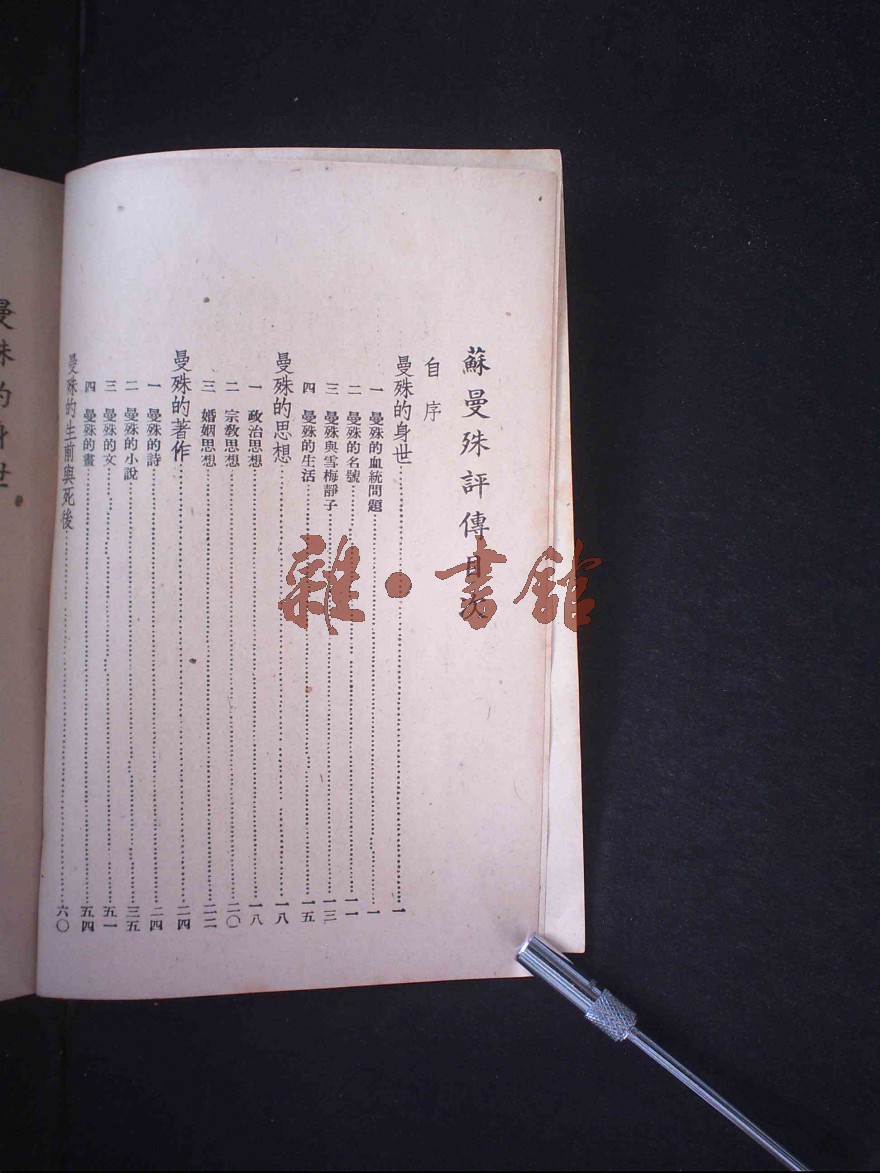 蘇曼殊評傳目次
自序
曼殊的身世…………一
一 曼殊的血統問題…………一
二 曼殊的名號…………一一
三 曼殊與雪梅靜子…………一三
四 曼殊的生活…………一五
曼殊的思想…………一八
一 政治思想…………一八
二 宗教思想…………二〇
三 婚姻思想…………二二
曼殊的著作…………二四
一 曼殊的詩…………二四
二 曼殊的小說…………三五
三 曼殊的文…………五一
四 曼殊的畫…………五四
曼殊的生前與死後…………六〇
曼殊的身世
雜·書館